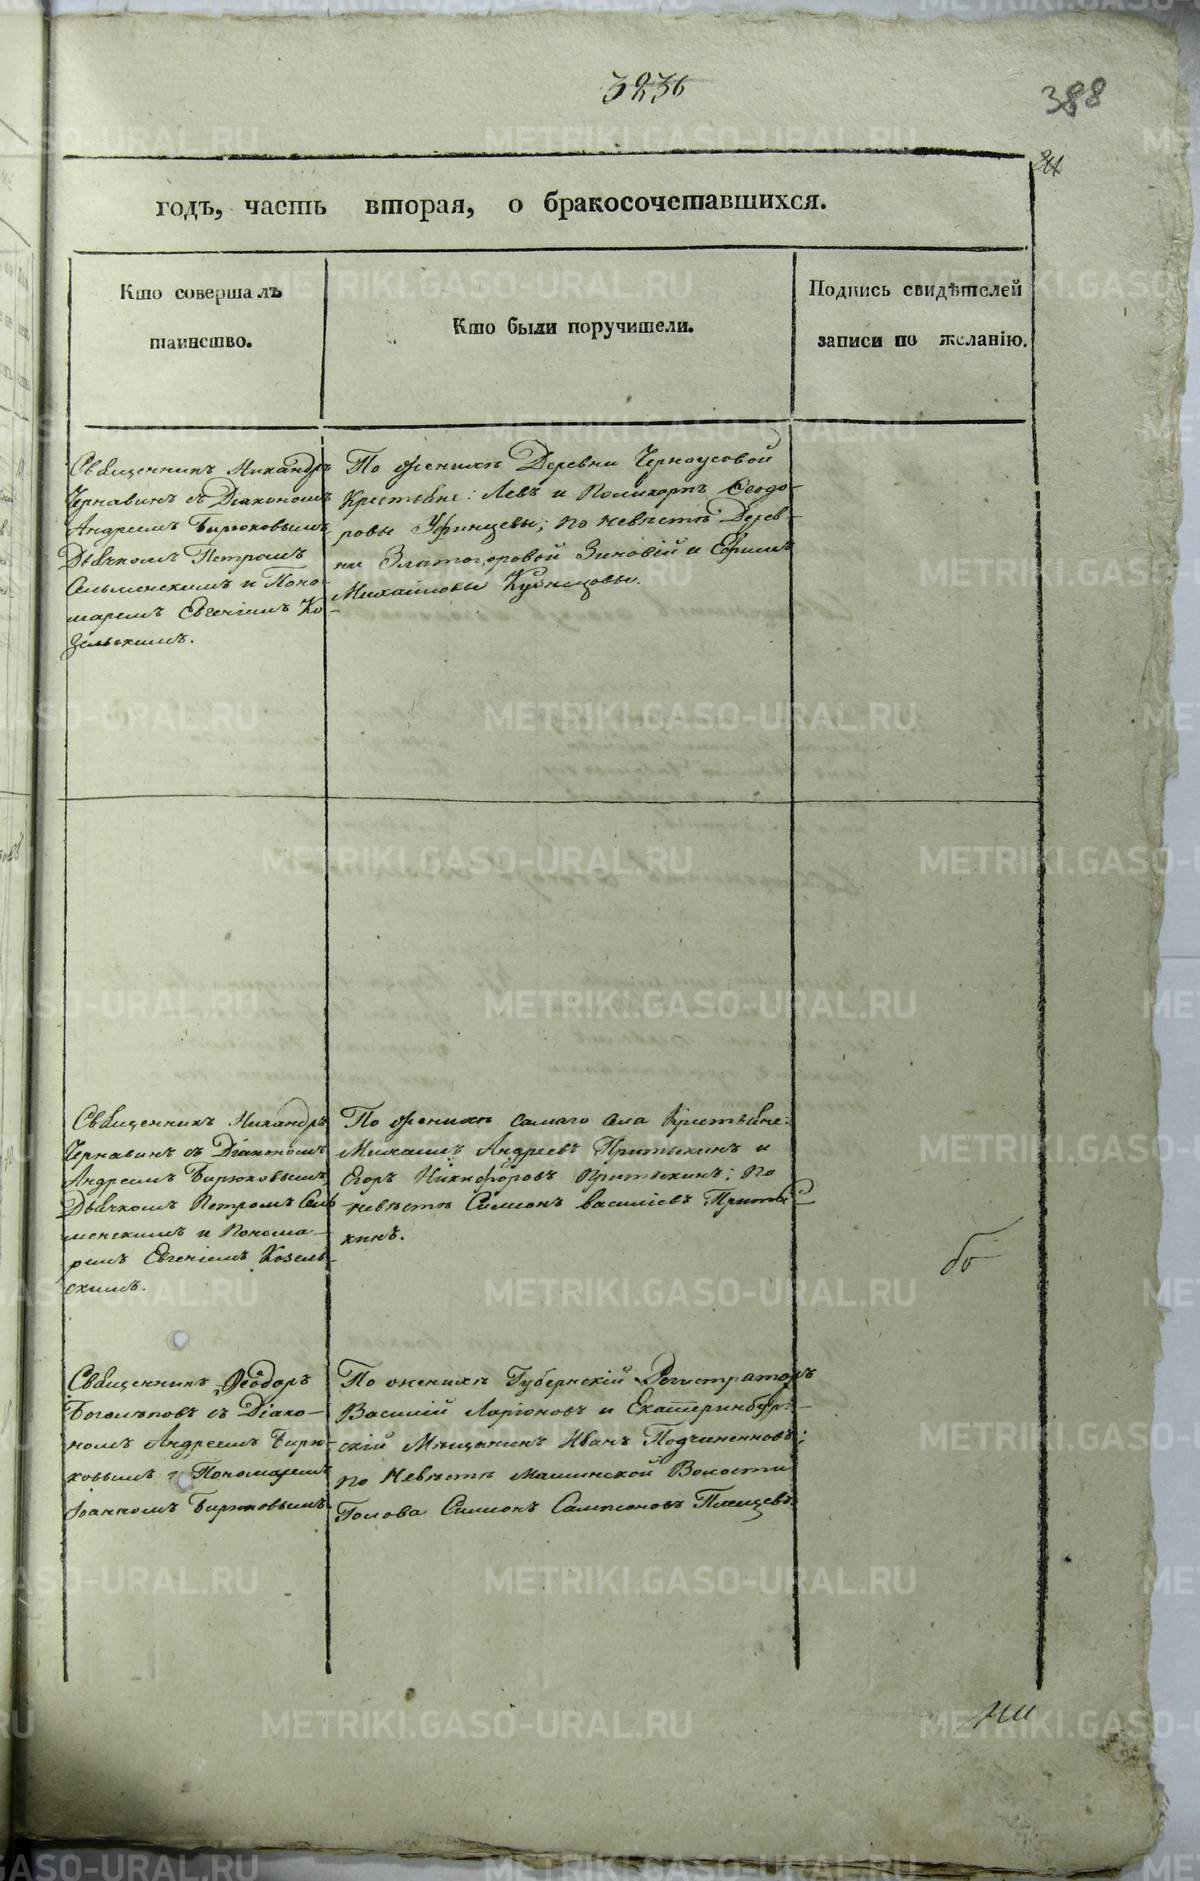 388
годъ, часть вторая, о бракосочетавшихся.
Кто совершалъ
таинство.
Кто были поручители.
Подпись свидѣтелей
записи по желанію.
Священникъ Никандръ
Чернавинъ съ Діакономъ
Андреемъ Бирюковымъ
Дьячкомъ Петромъ
Сельменскимъ и Поно-
маремъ Евгеніемъ Ко-
зельскимъ.
По женихѣ Деревни Черноусовой
Крестьяне: Левъ и Поликарпъ Ѳеодо-
ровы Уфинцевы; по невѣстѣ Дерев-
ни Златогоровой Зиновій и Ефимъ
Михайловы Кузнецовы.
Священникъ Никандръ
Чернавинъ съ Діакономъ
Андреемъ Бирюковымъ,
Дьячкомъ Петромъ Сель
менскимъ и Понома-
ремъ Евгеніемъ Козель-
скимъ.
По женихѣ самаго села Крестьяне:
Михаилъ Андреевъ Притыкинъ и
Егоръ Никифоровъ Притыкинъ; по
невѣстѣ Симеонъ Василіевъ Приты-
кинъ.
Священникъ Ѳеодоръ
Боголѣповъ съ Діако-
номъ Андреемъ Бирю-
ковымъ и Пономаремъ
Іоанномъ Бирюковымъ
По женихѣ Губернскій Регистраторъ
Василій Ларіоновъ и Екатеринбур-
скій Мѣщанинъ Иванъ Подчиненновъ;
по Невѣстѣ Маминской Волости
Голова Симеонъ Сампсоновъ Плещевъ
METRIKI.GASO-URAL.RU